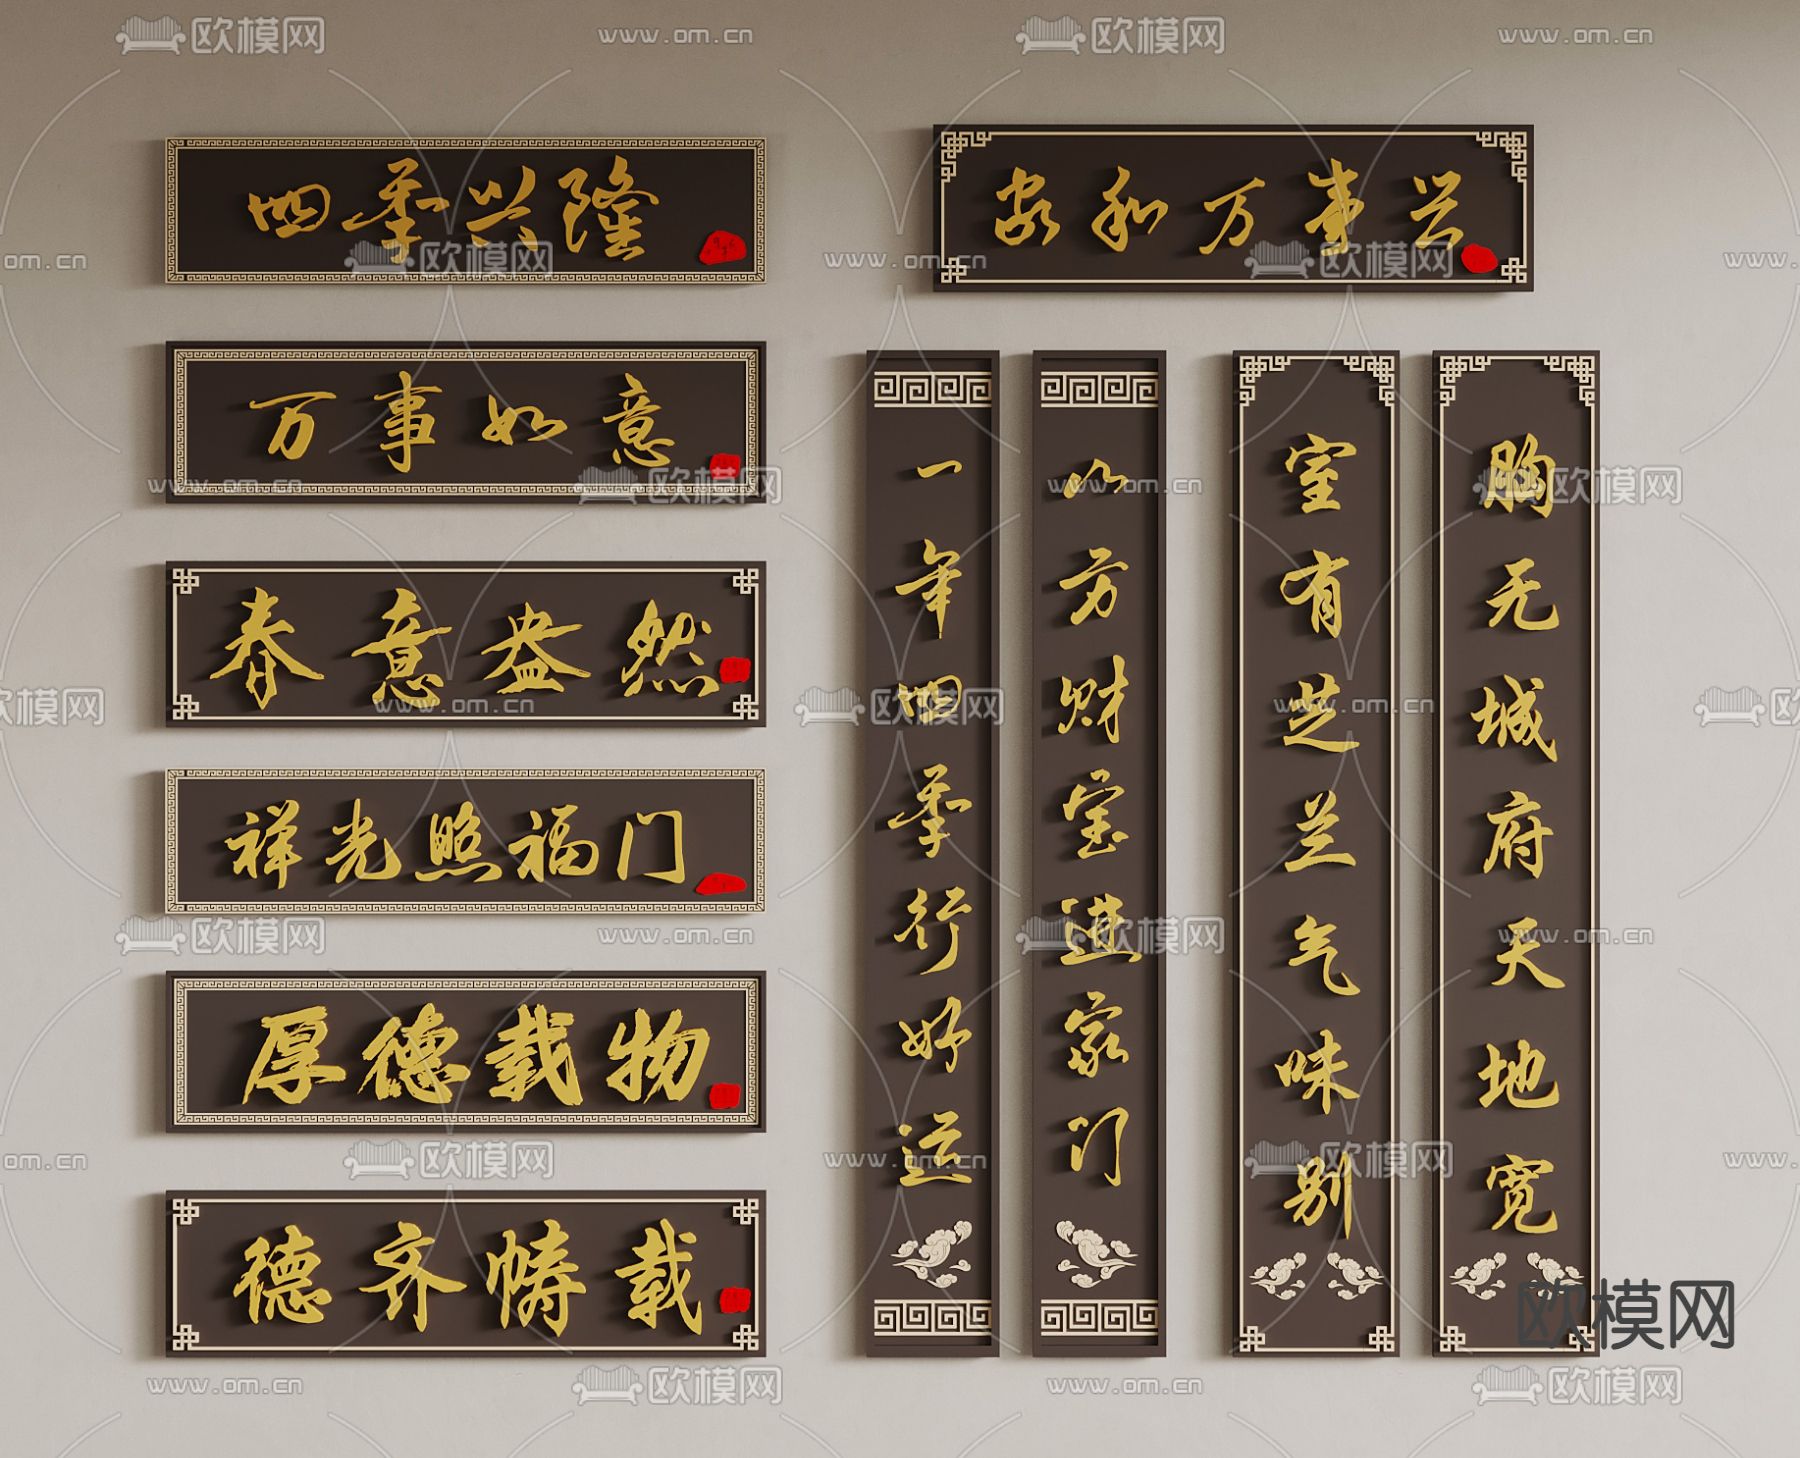 四季兴隆
家和万事兴
万事如意
春意盎然
祥光照福门
厚德载物
德齐帱载
一年四季行好运
八方财宝进家门
室有芝兰气味别
胸无城府天地宽
欧模网
www.om.cn